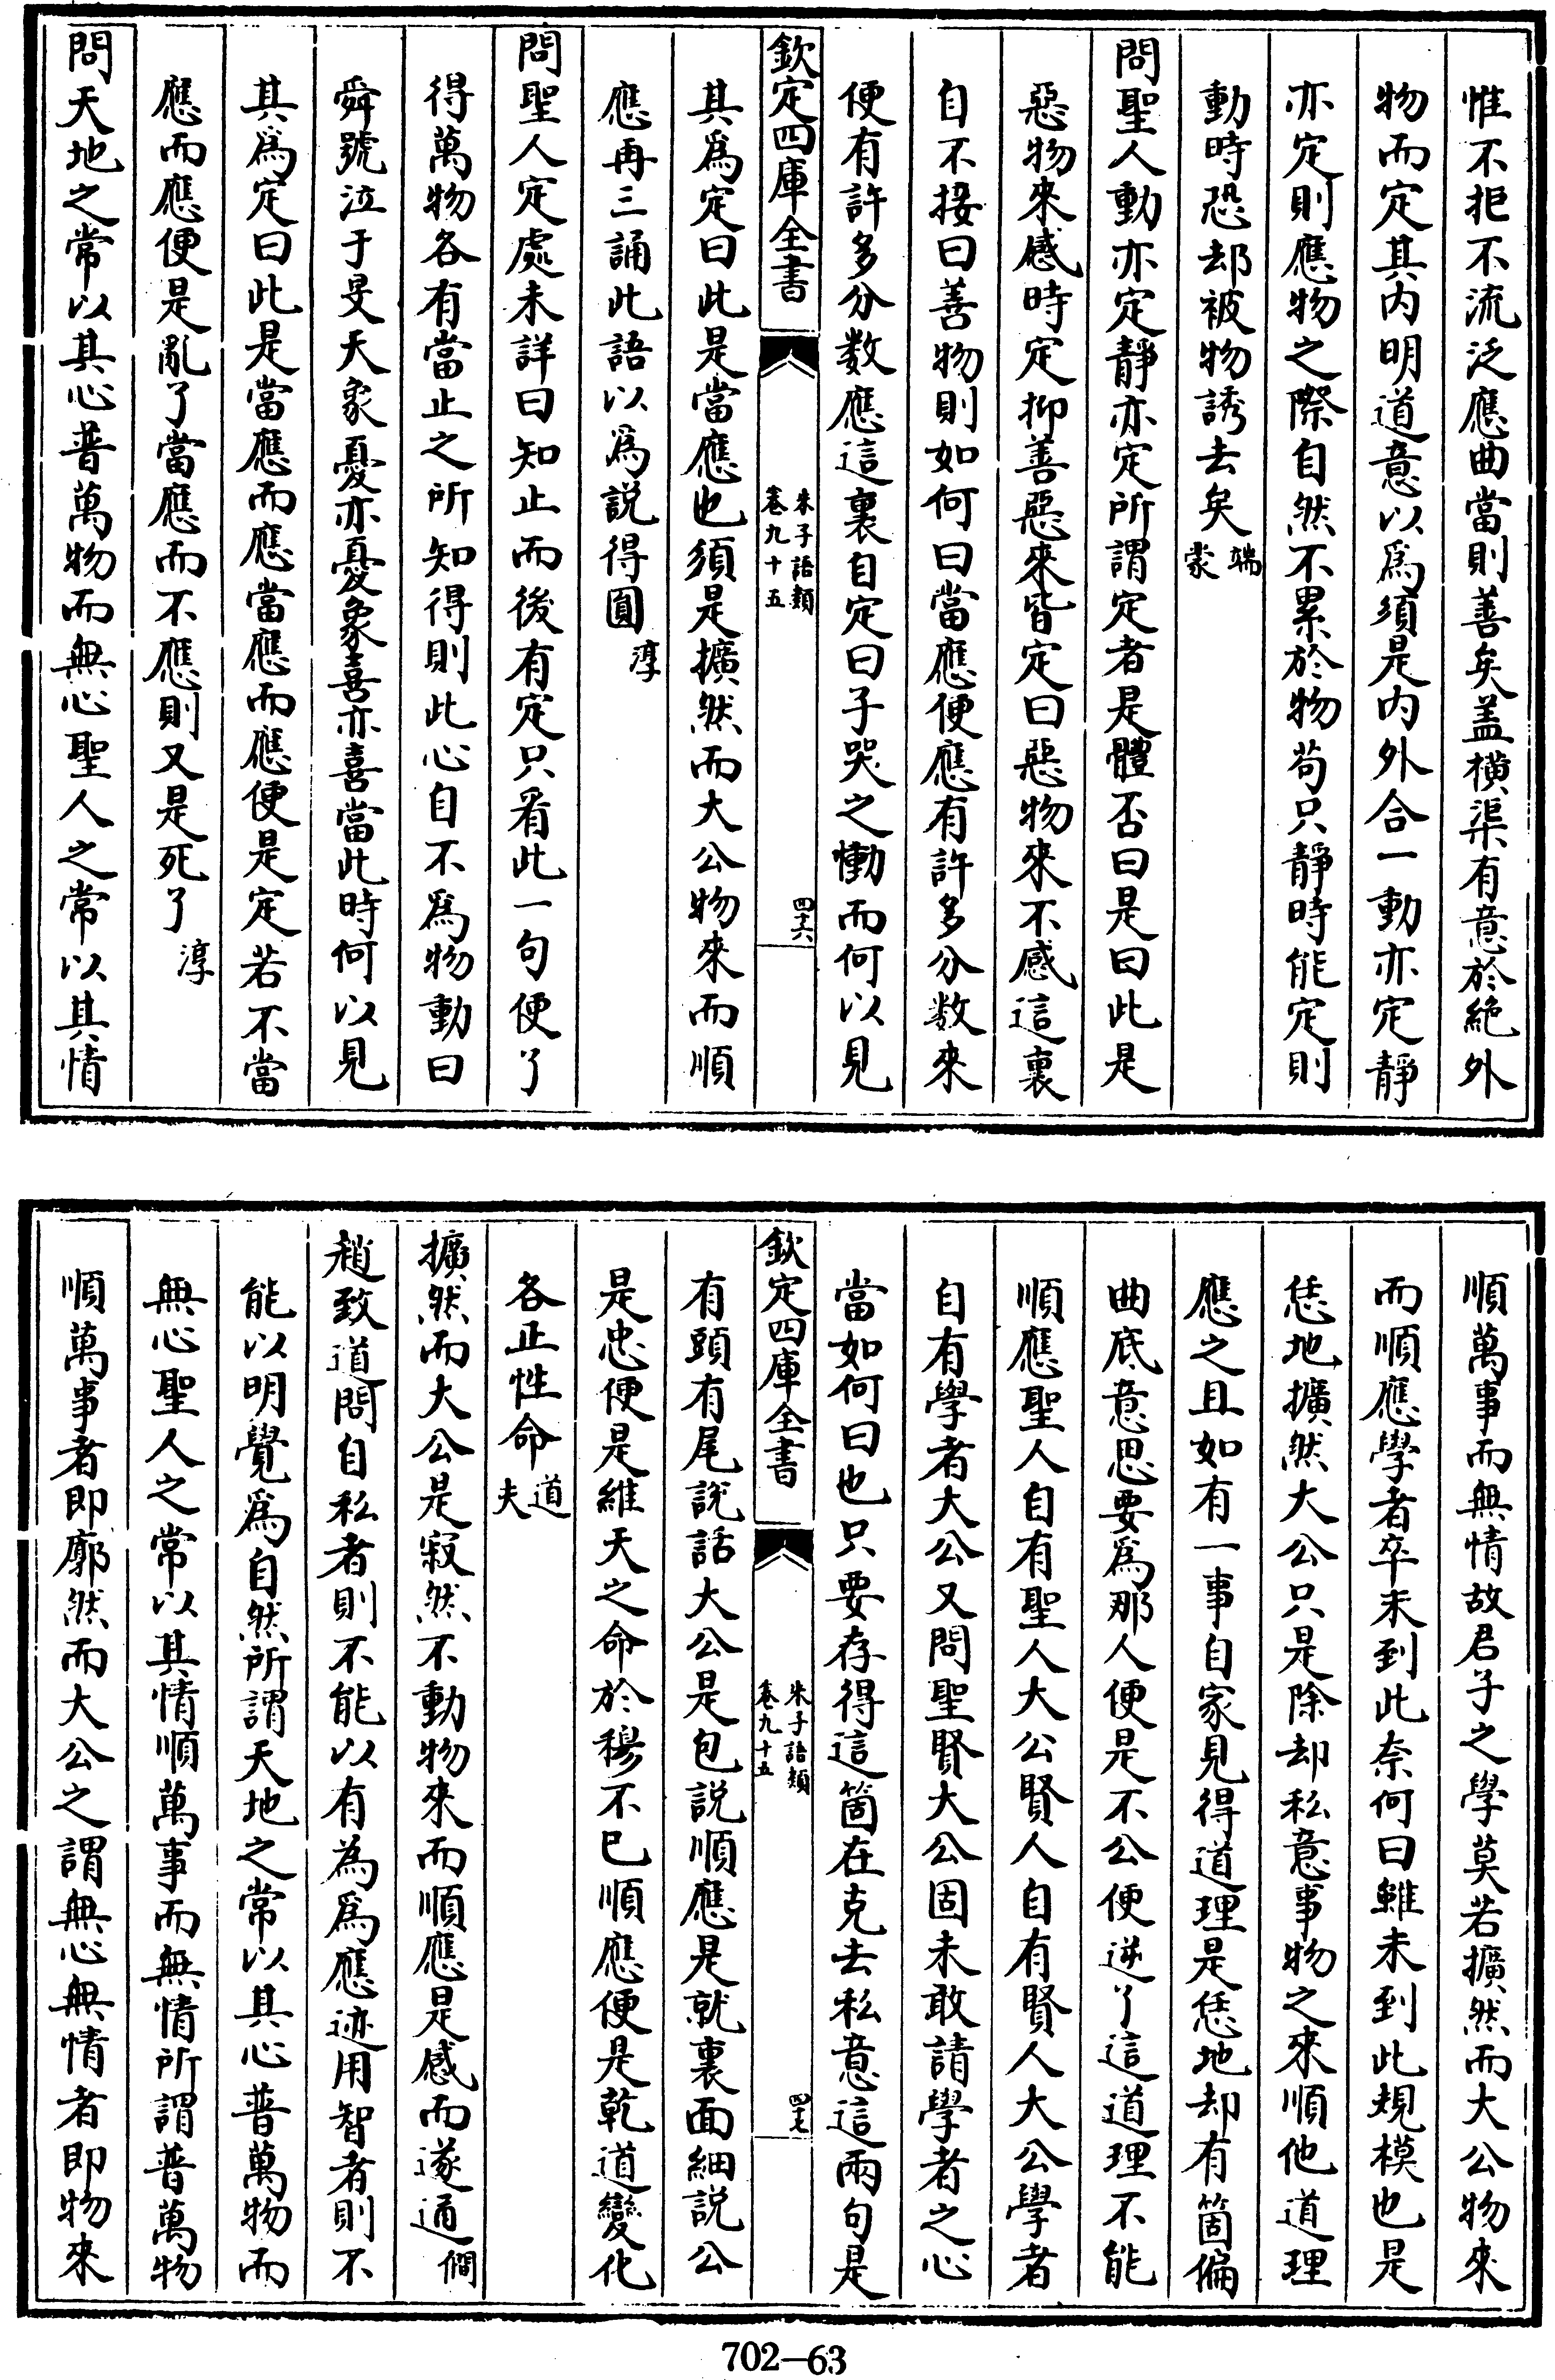 惟不拒不流泛應曲當則善矣盖橫渠有意於絶外
物而定其内明道意以爲須是内外合一動亦定靜
亦定則應物之際自然不累於物苟只靜時能定則
動時恐却被物誘去矣端蒙
問聖人動亦定靜亦定所謂定者是體否曰是曰此是
惡物來感時定抑善惡來皆定曰惡物來不感這裏
自不接曰善物則如何曰當應便應有許多分數來
便有許多分數應這裏自定曰子哭之慟而何以見
欽定四庫全書
朱子語類
卷九十五
四十六
其爲定曰此是當應也須是擴然而大公物來而順
應再三誦此語以爲説得圓淳
問聖人定處未詳曰知止而後有定只看此一句便了
得萬物各有當止之所知得則此心自不爲物動曰
舜號泣于旻天象憂亦憂象喜亦喜當此時何以見
其爲定曰此是當應而應當應而應便是定若不當
應而應便是亂了當應而不應則又是死了淳
問天地之常以其心普萬物而無心聖人之常以其情
順萬事而無情故君子之學莫若擴然而大公物來
而順應學者卒未到此奈何曰雖未到此規模也是
恁地擴然大公只是除却私意事物之來順他道理
應之且如有一事自家見得道理是恁地却有箇偏
曲底意思要爲那人便是不公便逆了這道理不能
順應聖人自有聖人大公賢人自有賢人大公學者
自有學者大公又問聖賢大公固未敢請學者之心
當如何曰也只要存得這箇在克去私意這兩句是
欽定四庫全書
朱子語類
卷九十五
四十七
有頭有尾説話大公是包説順應是就裏面細説公
是忠便是維天之命於穆不已順應便是乾道變化
各正性命道夫
擴然而大公是寂然不動物來而順應是感而遂通僩
趙致道問自私者則不能以有為爲應迹用智者則不
能以明覺爲自然所謂天地之常以其心普萬物而
無心聖人之常以其情順萬事而無情所謂普萬物
順萬事者即廓然而大公之謂無心無情者即物來
702—63